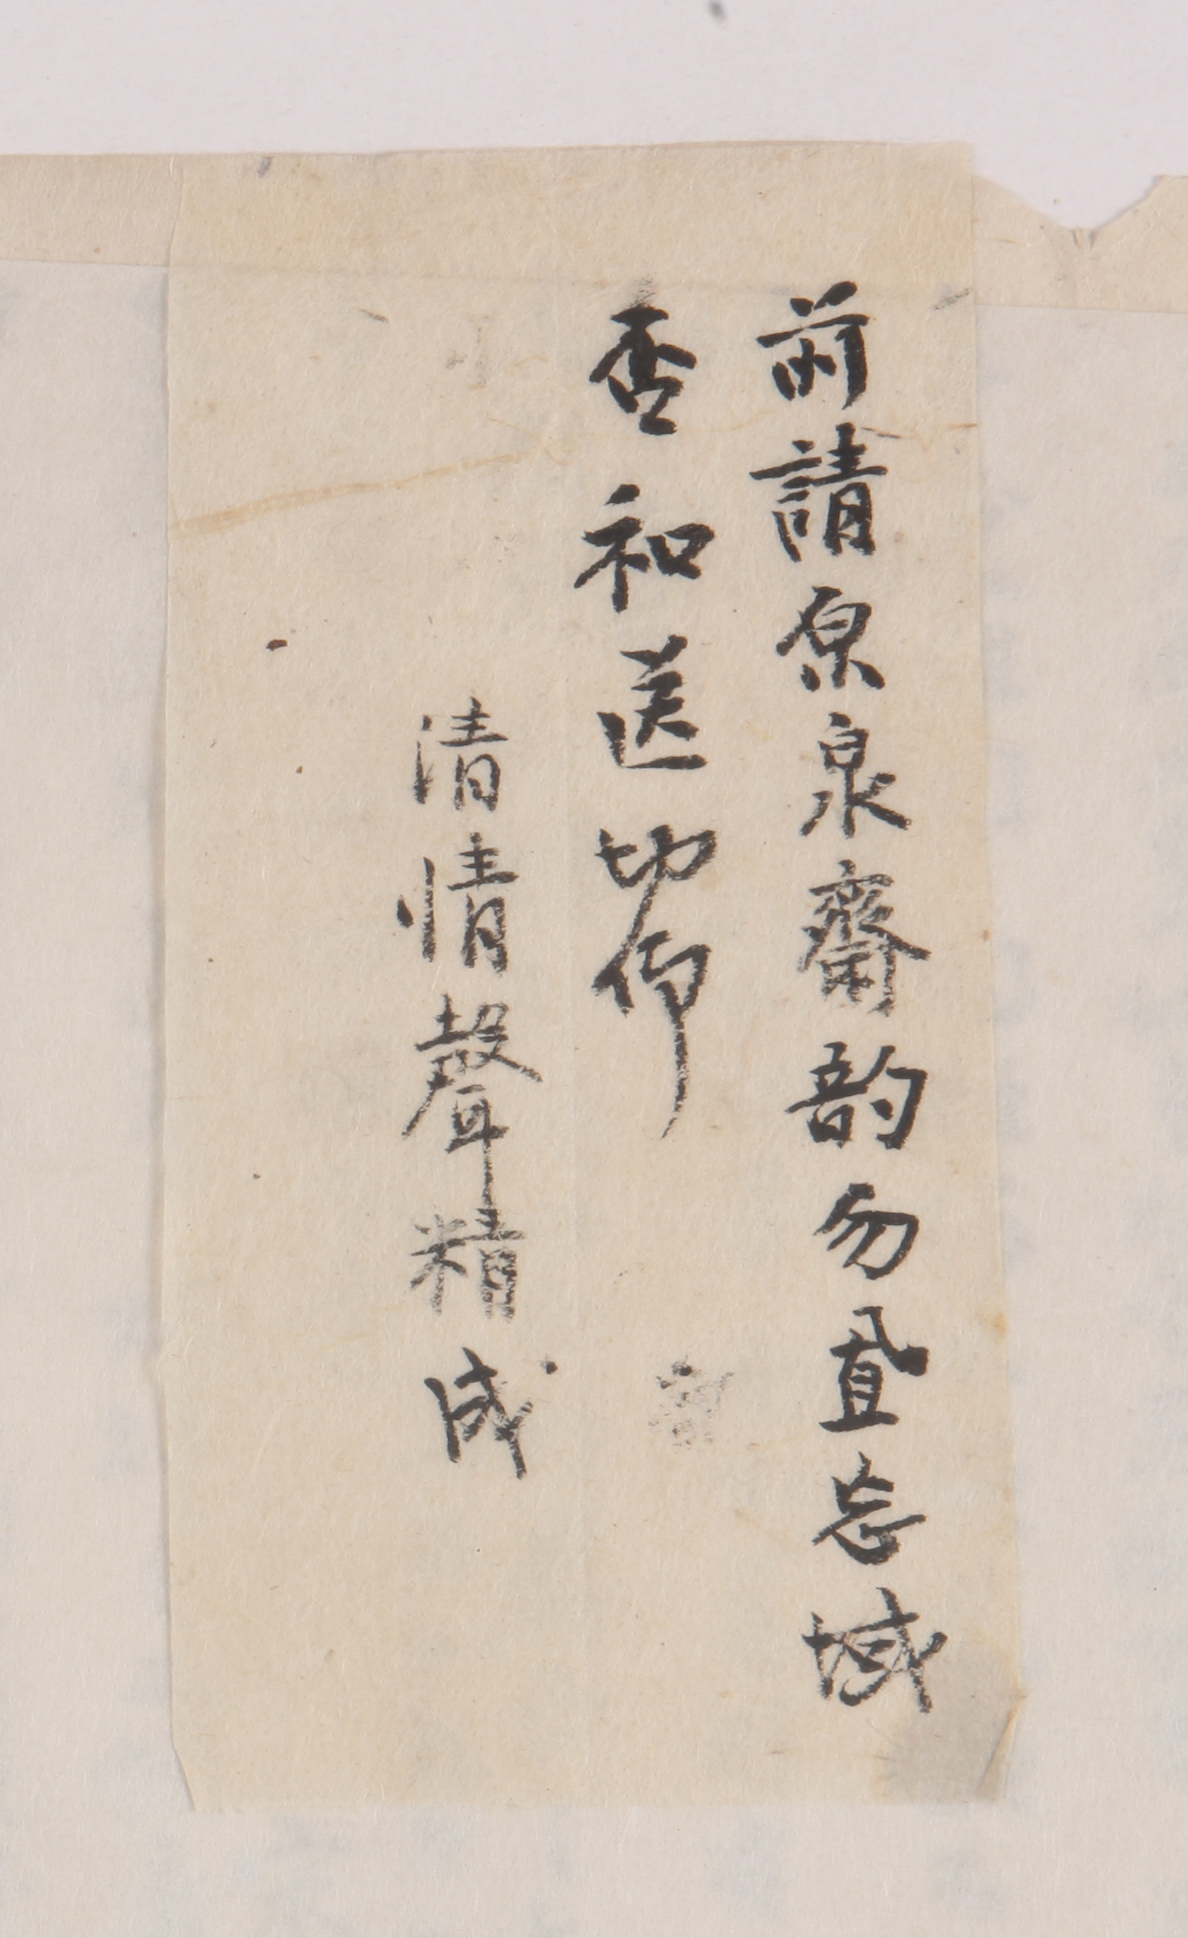 前請原泉齋韵勿置忘域
否和送切仰
清情聲精成